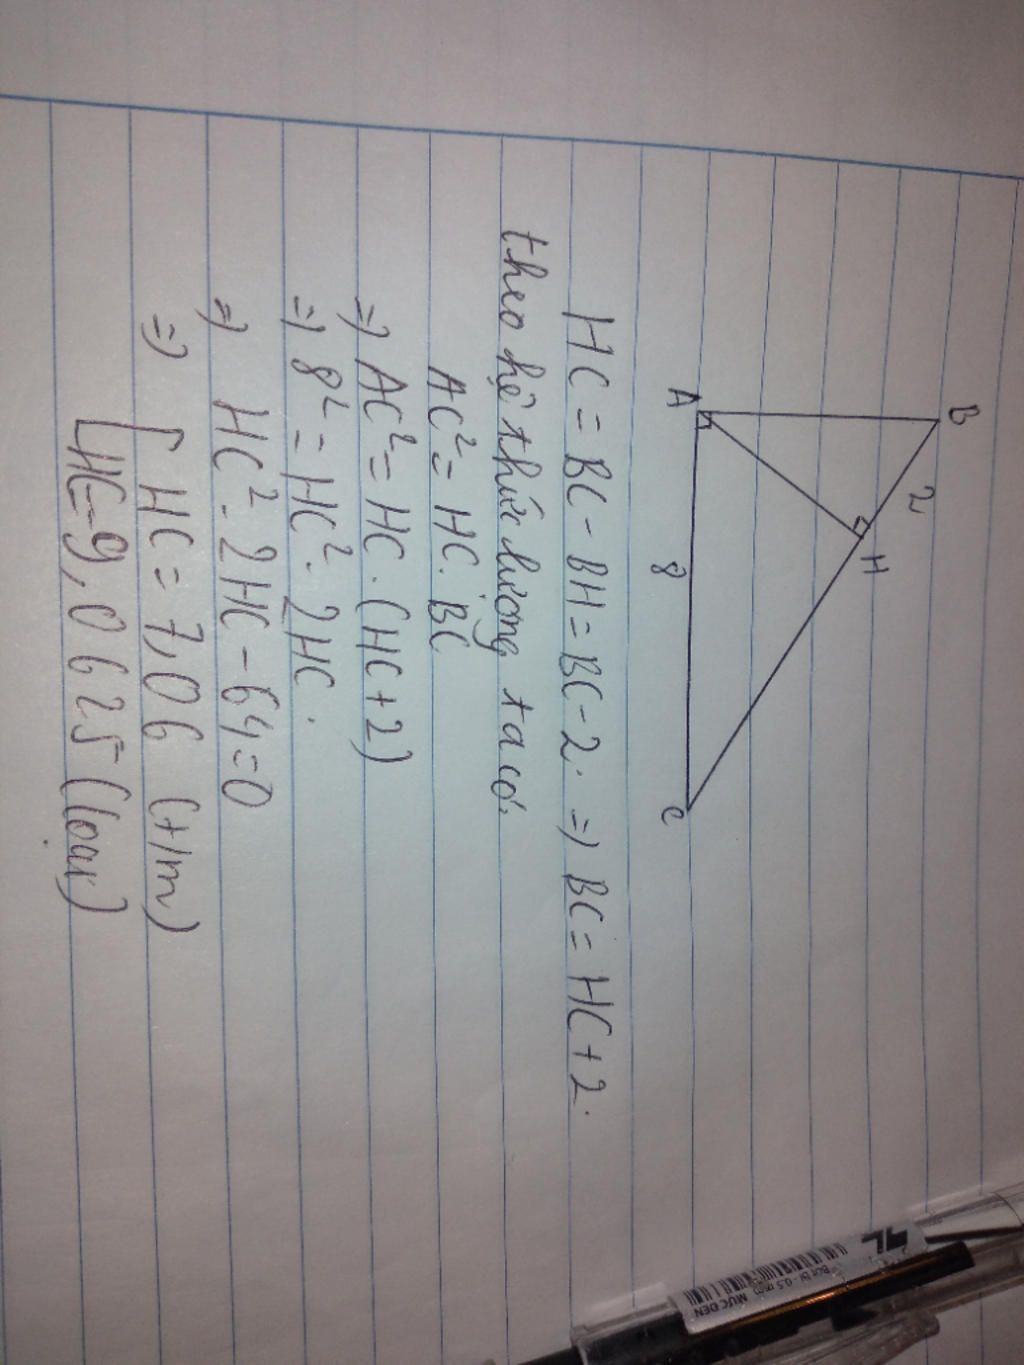 B
2
H
A
8
C
HC = BC - BH = BC - 2. => BC = HC + 2.
theo hệ thức lượng ta có:
AC² = HC. BC
=> AC² = HC. (HC + 2)
=> 8² = HC² - 2HC.
=> HC² - 2HC - 64 = 0
=> [ HC = 7,06 (t/m)
HC = 9,0625 (loại)
TL
Bút bi - 0.5 mm MỰC ĐEN